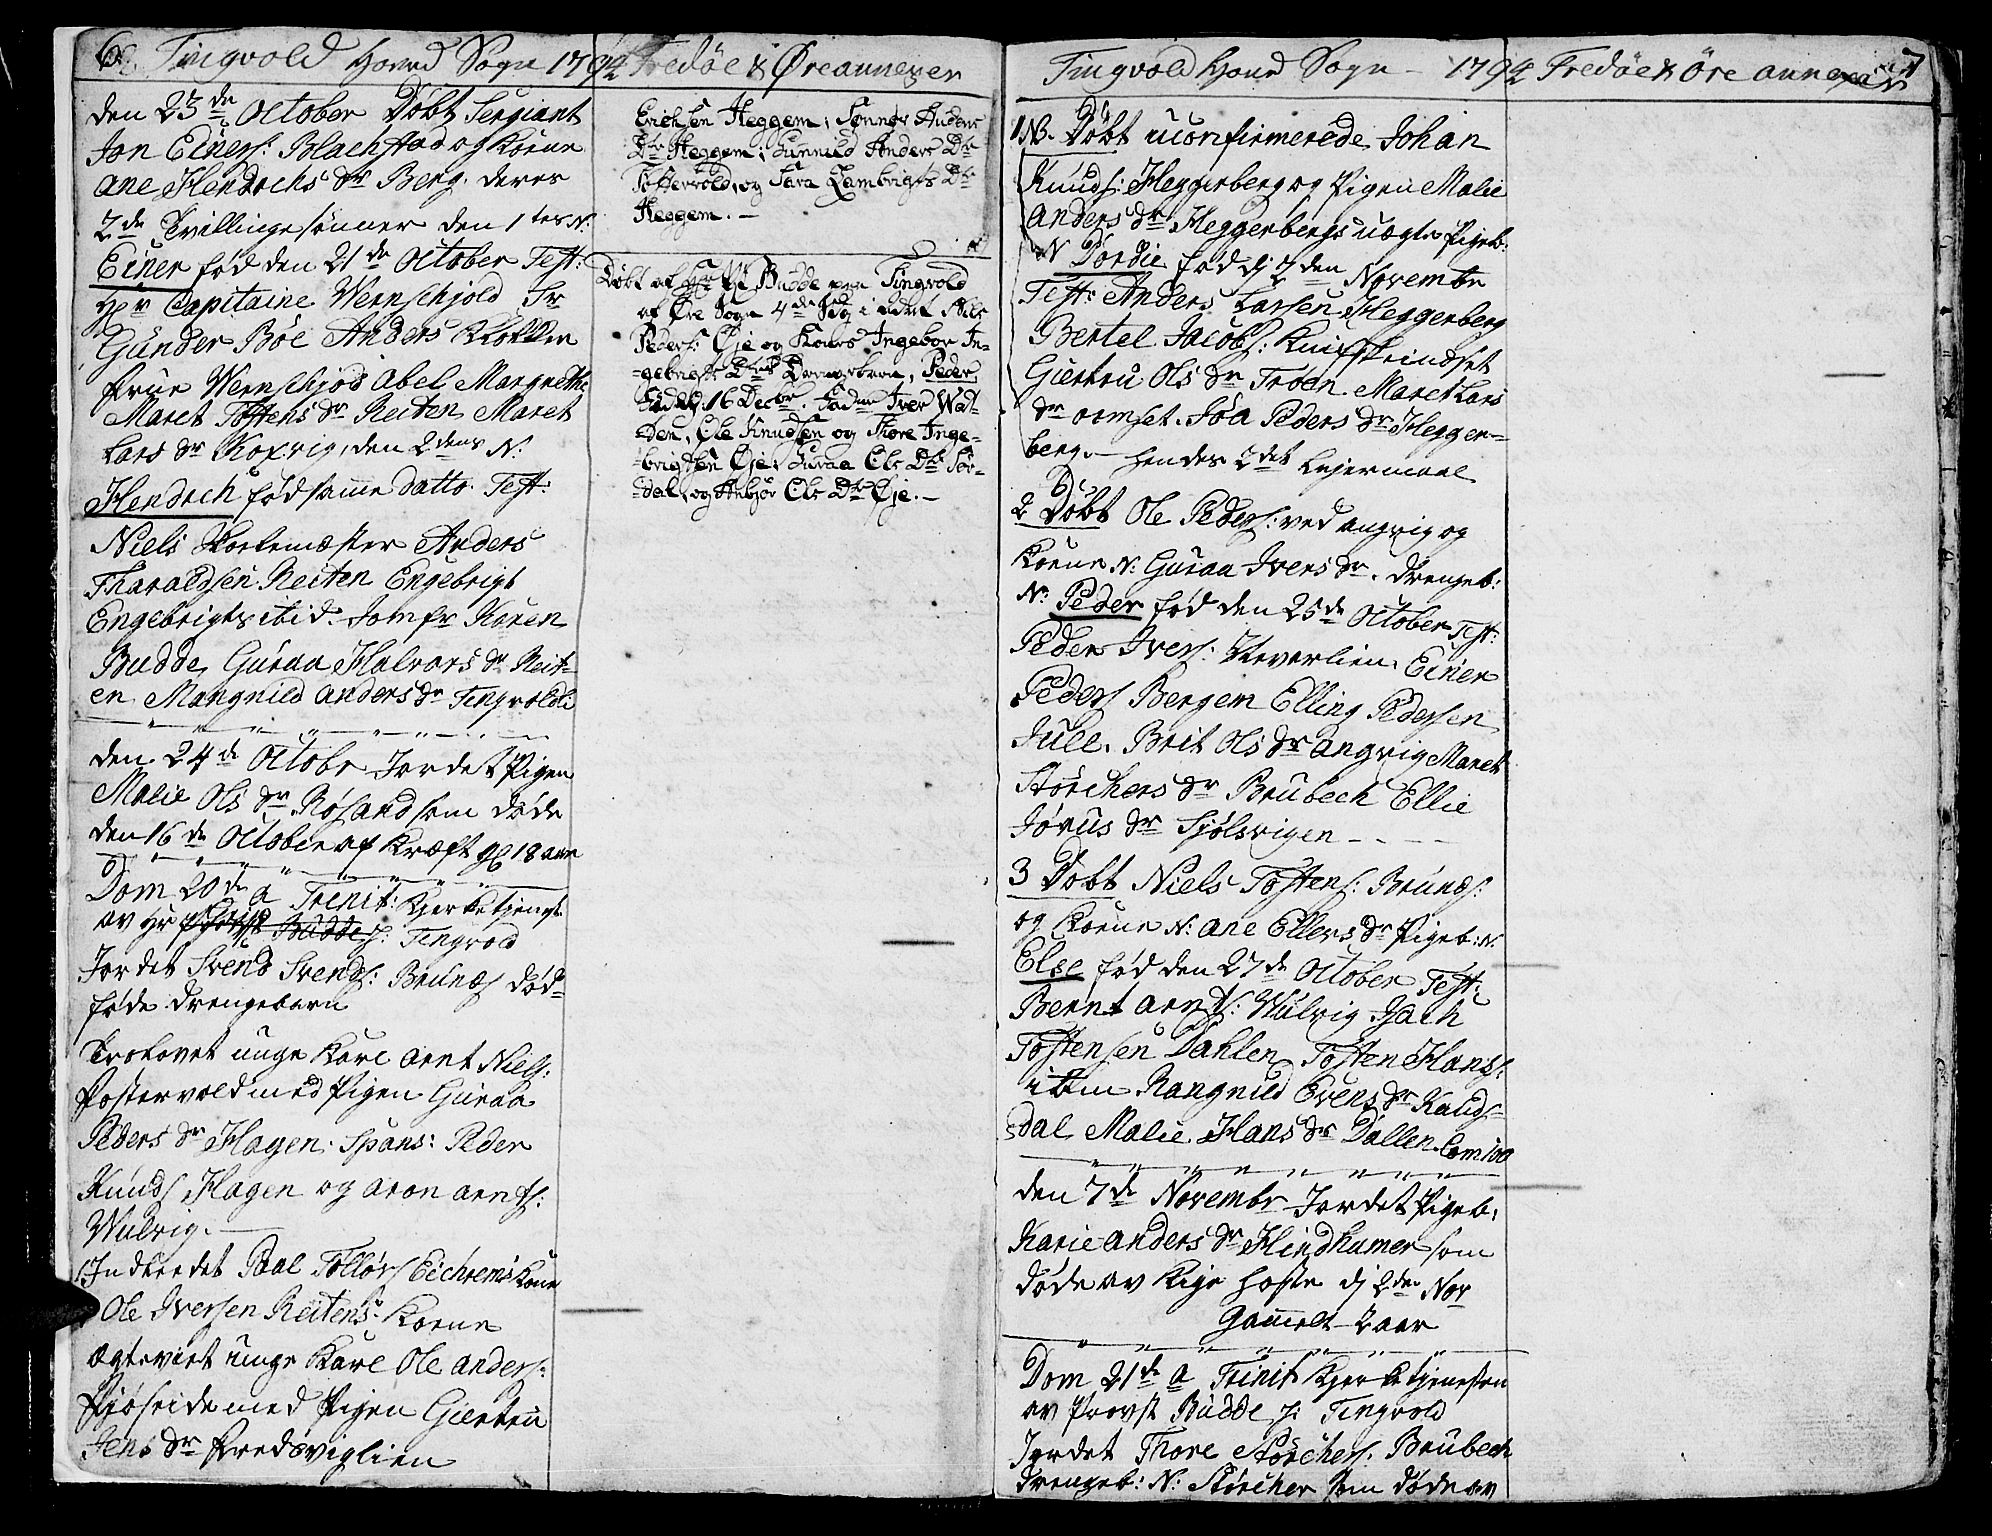 6 Tingvold Hoved Sogn 1794 Fredøe & Øre annexer
den 23de October Døbt Sergiant
Jon Einers: Blachstad og Kone
Ane Hendrichs dr Berg. deres
2de Tvillingesønner den 1tes N:
Einer fød den 21de October Test:
Hr Capitaine Wernschjold Sr
Gunder Böe Anders Klokker
frue Wernschjod Abel Margrethe
Maret Tostens dr Reiten Maret
Lars dr Koxvig, den 2dens N:
Hendrch fød samme datto. Test:
Niels Anders
Tharaldsen Reiten Engebrigt
Engebrigts ibid. Jomfr Karen
Budde, Guraa Halvors dr Reit-
en Mangnild Anders dr Tingvold
den 24de Octobr Jordet Pigen
Malie Ols dr Røsand som døde
den 16de October af Kræft gl 18 aar
Dom 20de a Trenit: Kjerketjenst
av Hr Budde Tingvold
Jordet Svend Svends: Brunes død-
føde drengebarn
Trolovet unge Karl Arnt Niels:
Postervold med Pigen Guraa
Peders dr Hagen. Spons: Peder
Knuds Hagen og Aron Arnts:
Wulvig.
Indleedet Paal Tollørs Eichrems Kone
Ole Iversen Reitens Kone
Ægteviet unge Karl Ole Anders:
med Pigen Giertru
Jens dr Fredsviglien
Erichsen Heggem; Sønner Anders
Dtr Heggem; Gunnild Anders Dtr
Tostervold, og Sara Lambrigts Dtr
Heggem. -
Døbt af Hr Budde paa Tingvold
af Øre Sogn 4de Søg i Advt Niels
Peders: Øje og Kones Ingebor In-
gebrigts Dtrs Drengebarn, Peder,
Fød d. 16 Decbr. Fadr Iver Wad-
den, Ole Knudsen og Thore Inge-
brigtsen Øje; Guraa Ols Dtr Sør-
dal, og Anbjør Ols Dtr Øje. -
Tingvold Hoved Sogn - 1794 Fredøe & Øre annexer 7
1 NB. Døbt uconfirmerede Johan
Knuds: Heggerberg og Pigen Malie
Anders dr Heggerbergs uægte Pigeb:
N Dordie fød dj 2den Novembr
Test: Anders Larsen Heggerberg
Bertel Jacobs:
Giertru Ols dr Troen. Maret Lars
dr Aemset. Soa Peders dr Hegger-
berg. - hendes 2det Lejermaal
2 Døbt Ole Peders: ved Angvig og
Kone N: Guraa Ivers dr. drengeb:
N: Peder fød den 25de October Test:
Peder Ivers: Einer
Peders Bergem Elling Pedersen
Jule. Brit Ols dr Angvig Maret
Størchers dr Brubech Ellie
Jønus dr Sjølsvigen - - -
3 Døbt Niels Tostens: Brunes:
og Kone N: Ane Ellers dr Pigeb: N.
Else fød den 27de October Test:
Bernt Arnts: Wulvig Isach
Tostensen Dahlen Tosten Hans:
item Rangnild Evens dr Knuds-
dal Malie Hans dr Dallen
den 7de Novembr Jordet Pigeb:
Karie Anders dr Hindhamer som
døde av Kige Hoste dj 2den Nov
Gammelt 2 aar
Dom 21de a Trinit Kjerketjenesten
av Provst Budde p: Tingvold
Jordet Thore Størchers. Brubech
drengeb: N: Størcher som døde av